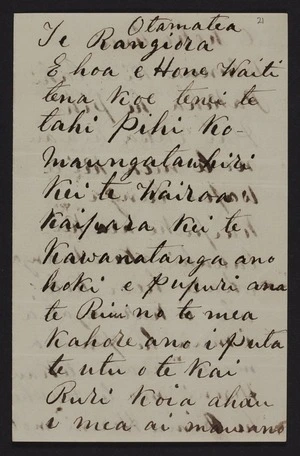 21
Otamatea
Te Rangiora
E hoa e Hone Waiti
tena koe tenei te
tahi Pihi ko-
Maungatawhiri
kei te Wairoa
Kaipara kei te
Kawanatanga ano
hoki e pupuri ana
te Riiri no te mea
kahore ano i puta
te utu o te kai
Ruri koia ahau
i mea ai mau ano